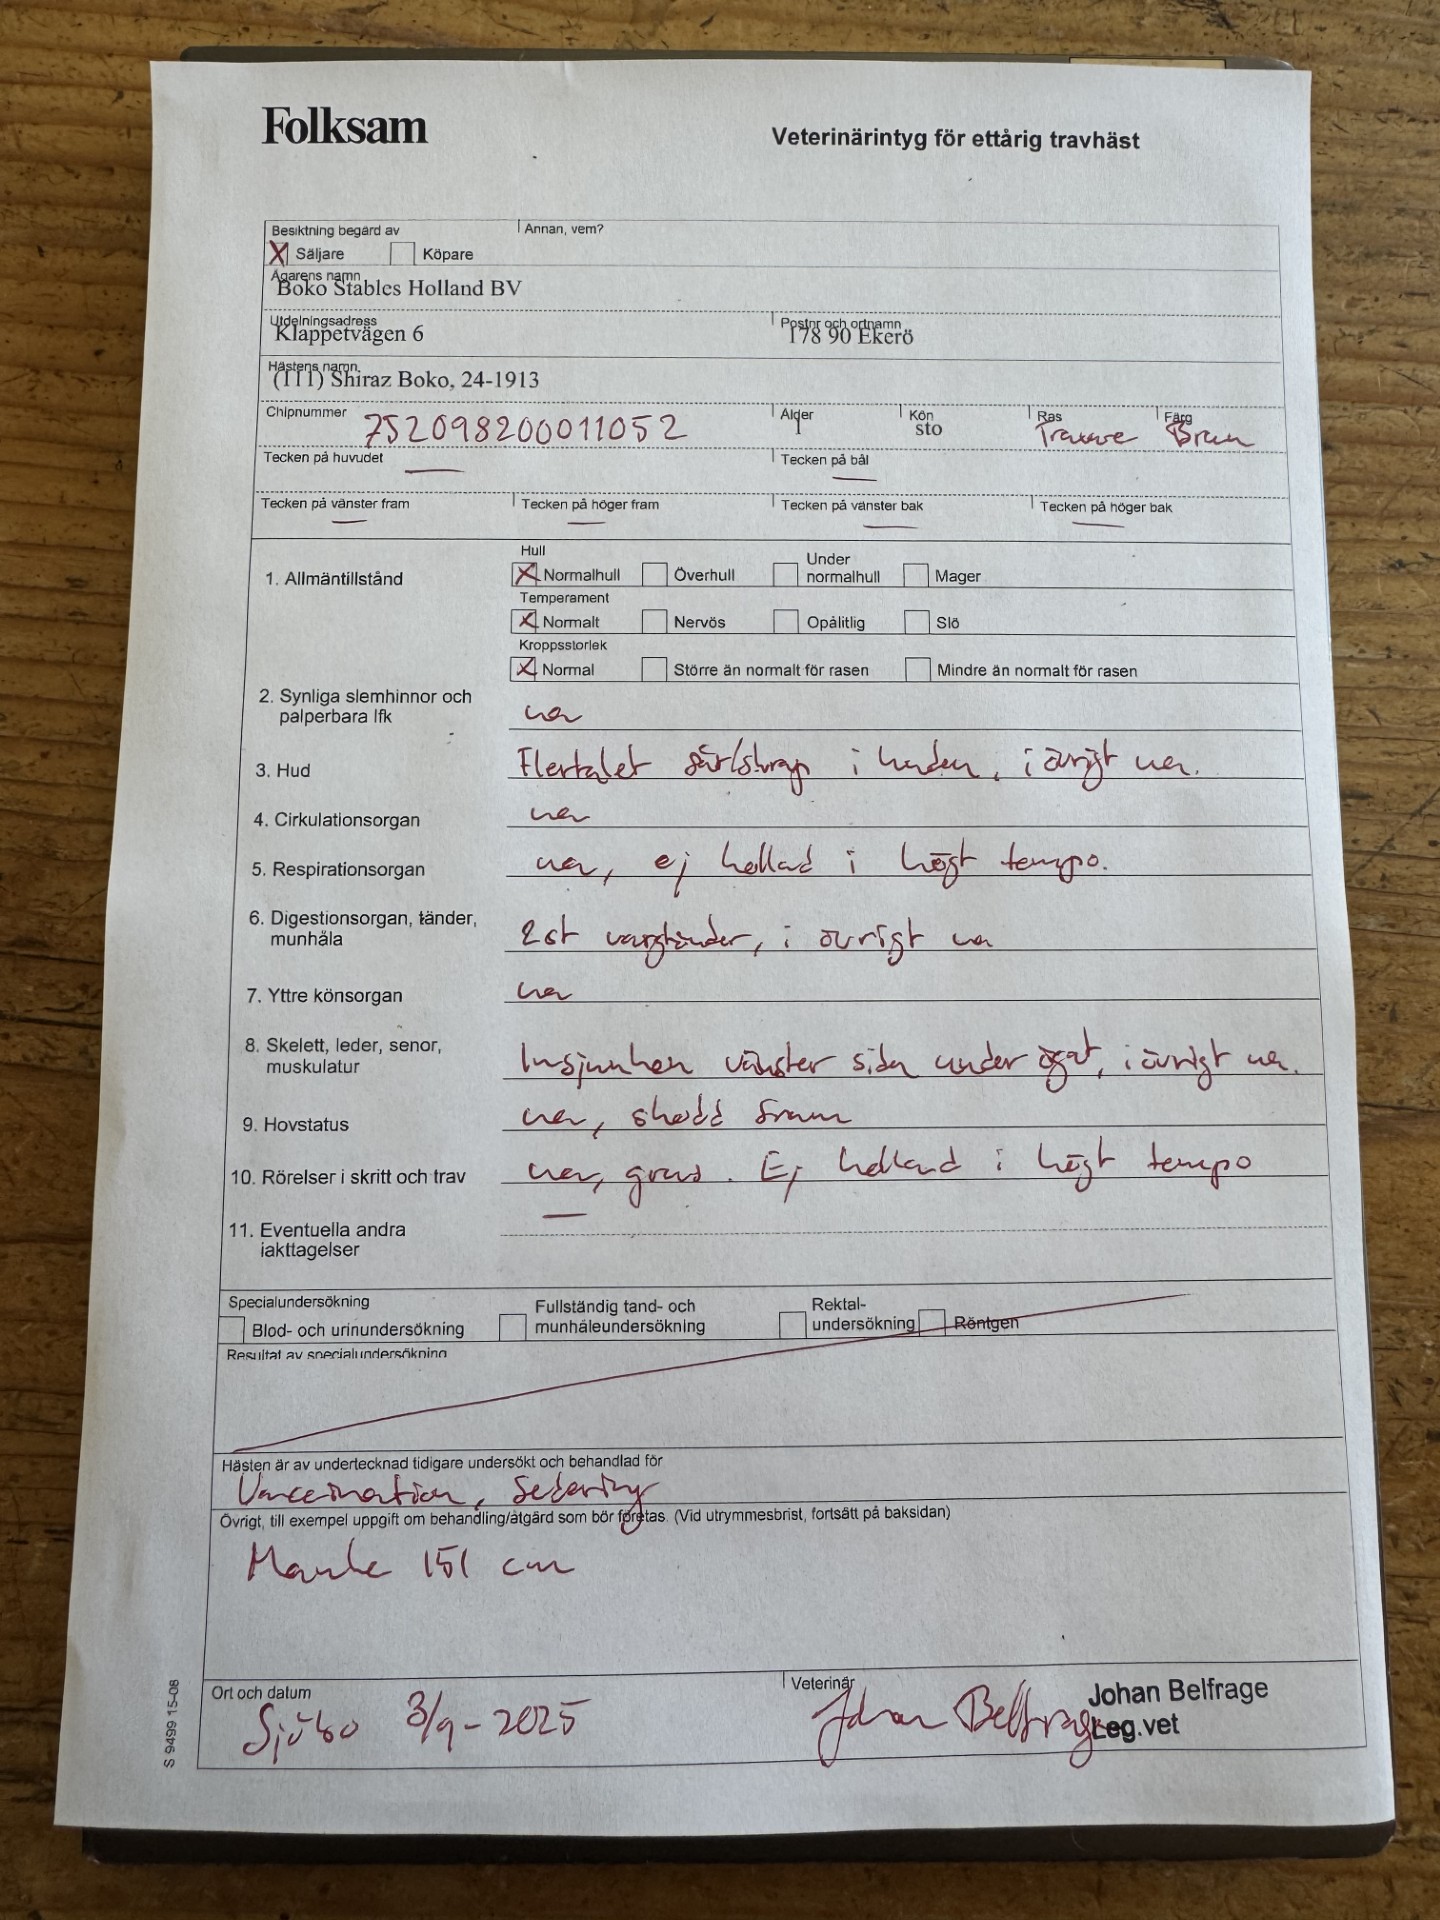 Folksam
Veterinärintyg för ettårig travhäst
Besiktning begärd av
Annan, vem?
X Säljare
Köpare
Ägarens namn
Boko Stables Holland BV
Utdelningsadress
Postnr och ortnamn
Klappetvägen 6
178 90 Ekerö
Hästens namn
(111) Shiraz Boko, 24-1913
Chipnummer 752098200011052
Ålder 1
Kön sto
Ras Travare
Färg Brun
Tecken på huvudet —
Tecken på bål —
Tecken på vänster fram —
Tecken på höger fram —
Tecken på vänster bak —
Tecken på höger bak —
1. Allmäntillstånd
Hull
X Normalhull Överhull Under normalhull Mager
Temperament
X Normalt Nervös Opålitlig Slö
Kroppsstorlek
X Normal Större än normalt för rasen Mindre än normalt för rasen
2. Synliga slemhinnor och
palperbara lfk
ua
3. Hud Flertalet sår/skrap i huden, i övrigt ua.
4. Cirkulationsorgan ua
5. Respirationsorgan ua, ej kollad i högt tempo.
6. Digestionsorgan, tänder,
munhåla
2st vargtänder, i övrigt ua
7. Yttre könsorgan ua
8. Skelett, leder, senor,
muskulatur
Insjunken vänster sida under ögat, i övrigt ua.
9. Hovstatus ua, skodd fram
10. Rörelser i skritt och trav ua, grus. Ej kollad i högt tempo
11. Eventuella andra
iakttagelser
—
Specialundersökning
Blod- och urinundersökning
Fullständig tand- och
munhåleundersökning
Rektal-
undersökning
Röntgen
Resultat av specialundersökning
Hästen är av undertecknad tidigare undersökt och behandlad för
Vaccination, Sedering
Övrigt, till exempel uppgift om behandling/åtgärd som bör företas. (Vid utrymmesbrist, fortsätt på baksidan)
Manke 151 cm
Ort och datum
Veterinär
Sjöbo 3/9-2025
Johan Belfrage
Johan Belfrage
Leg.vet
S 9499 15-08